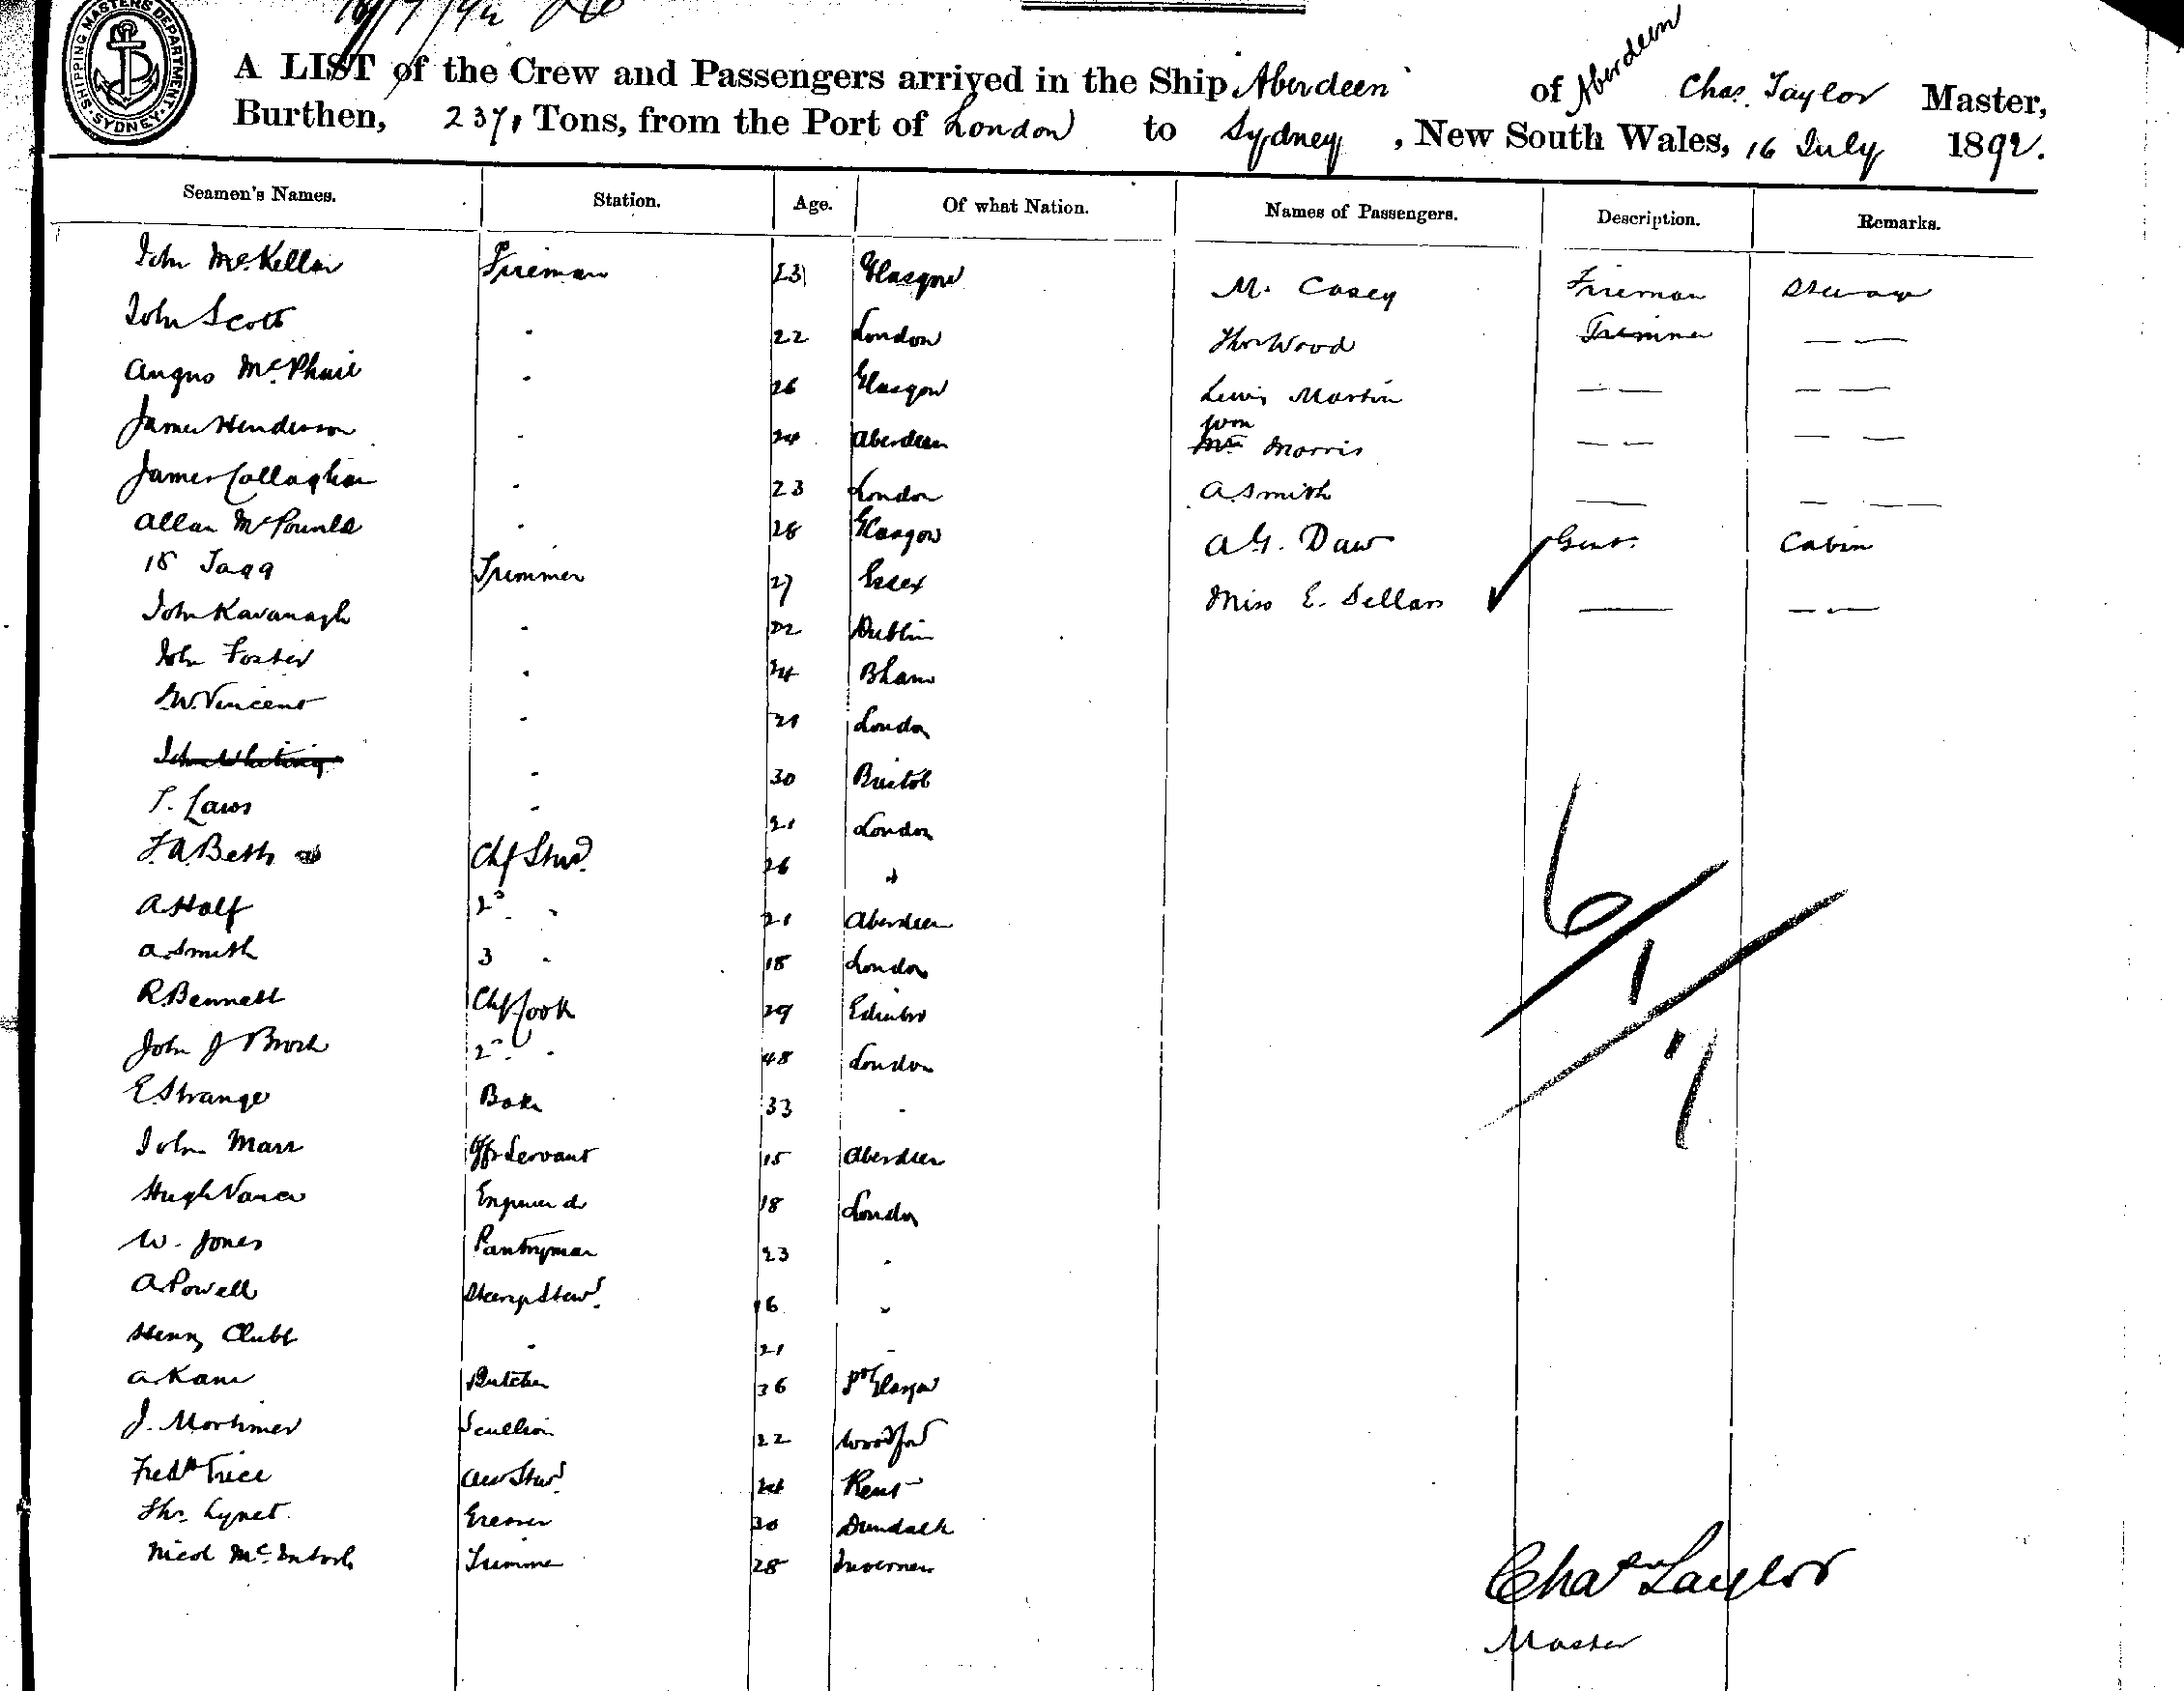 SHIPPING MASTERS DEPARTMENT
SYDNEY
A LIST of the Crew and Passengers arrived in the Ship Aberdeen of Aberdeen Chas. Taylor Master,
Burthen, 2371 Tons, from the Port of London to Sydney, New South Wales, 16 July 1892.
Seamen's Names. Station. Age. Of what Nation. Names of Passengers. Description. Remarks.
John McKellar Fireman 23 Glasgow M. Casey Fireman
John Scott " 22 London Thos Wood Trimmer — —
Angus McPhail " 26 Glasgow Lewis Martin — — — —
James Henderson " 24 Aberdeen Wm Morris — — — —
James Callaghan " 23 London A. Smith — — —
Allan 28 Glasgow A.G. Daw Gent. Cabin
Tagg Trimmer 27 Essex Miss E. Sellars — — —
John Kavanagh " 22 Dublin
John Foster " 24 Bham
W. Vincent " 21 London
John Whiting " 30 Bristol
T. Laws " 21 London
F.A. Beth Chf Stwd. 26 "
A. Half 2d " 21 Aberdeen
A. Smith 3 " 18 London
R. Bennett Chf Cook 29 Edinbro
John J 2d " 48 London
E. Strange Baker 33 "
John Marr Offr Servant 15 Aberdeen
Hugh Vance Engineer do 18 London
W. Jones Pantryman 23 "
A. Powell Steerage Stewd. 16 "
Henry Clubb " 21 "
A. Kane Butcher 36 Pt Glasgow
J. Mortimer Scullion 22 Woodford
Fredk Trice Stwd 24 Kent
Thos. Greaser 30 Dundalk
Nicol McIntosh Trimmer 28 Inverness
6/1/7
Chas Taylor
Master